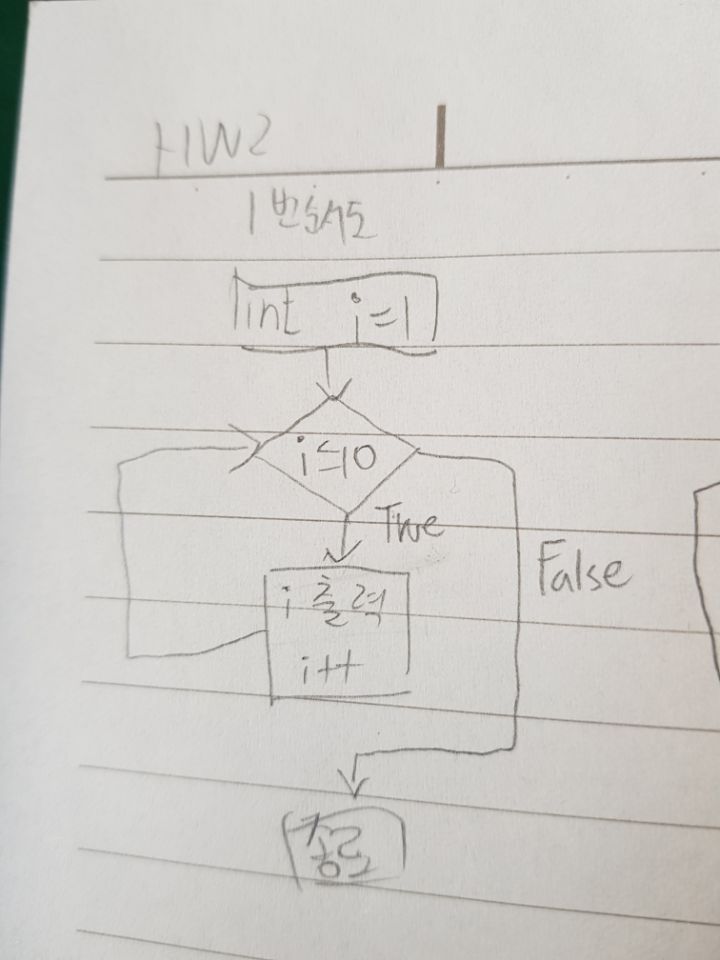 HW2
1번 순서도
int i=1
i≤10
True
False
i 출력
i++
종료